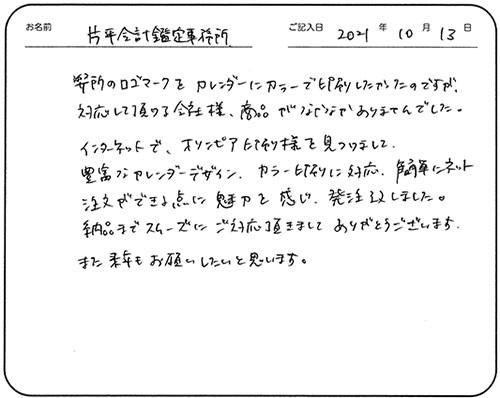 お名前 片平会計鑑定事務所 ご記入日 2021 年 10 月 13 日
弊所のロゴマークを カレンダーにカラーで印刷したかったのですが、
対応して頂ける会社様、商品がなかなかありませんでした。
インターネットで、オリンピア印刷様を見つけまして、
豊富なカレンダーデザイン、カラー印刷に対応、簡単にネット
注文ができる点に魅力を感じ、発注致しました。
納品までスムーズにご対応頂きまして ありがとうございます。
また来年もお願いしたいと思います。